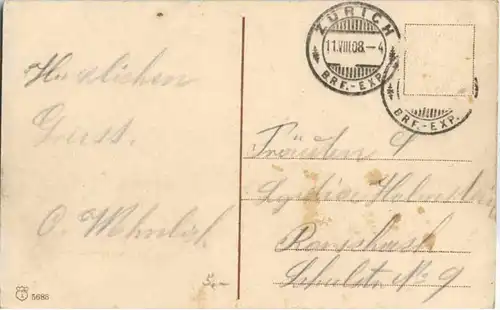 Herzlichen
Gruss.
5.-
5688
ZÜRICH
11.VIII.08.-4
BRF.-EXP.
BRF.-EXP.
Fräulein
Lydia
Schulstr. No 9